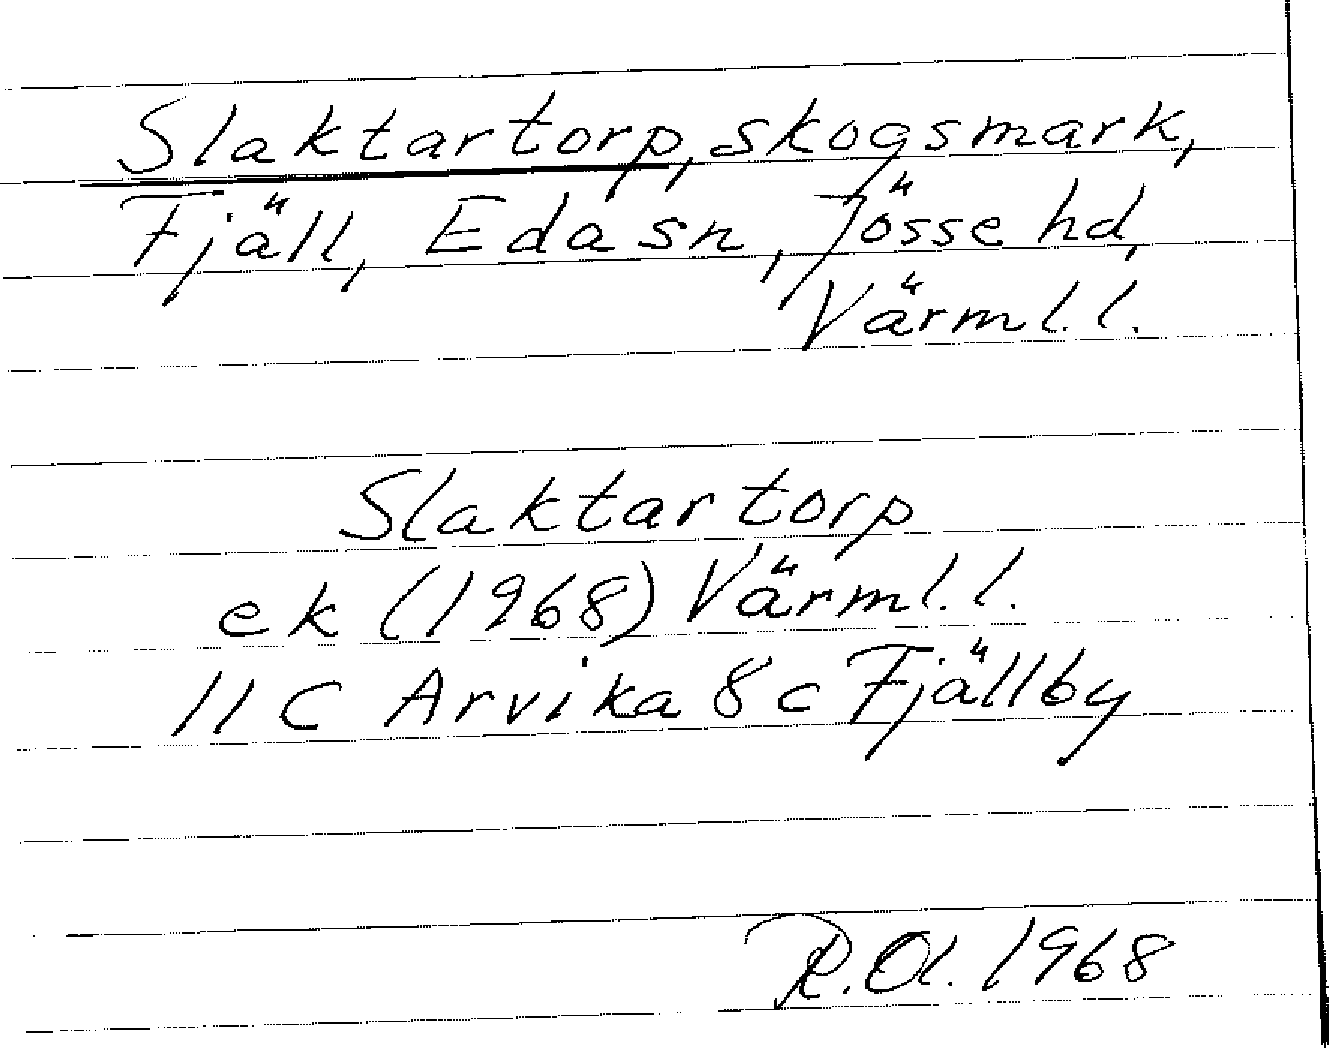 Slaktartorp, skogsmark,
Fjäll, Eda sn, Jösse hd,
Värml. l.
Slaktartorp
ek (1968) Värml. l.
11 C Arvika 8 c Fjällby
R. Ol. 1968